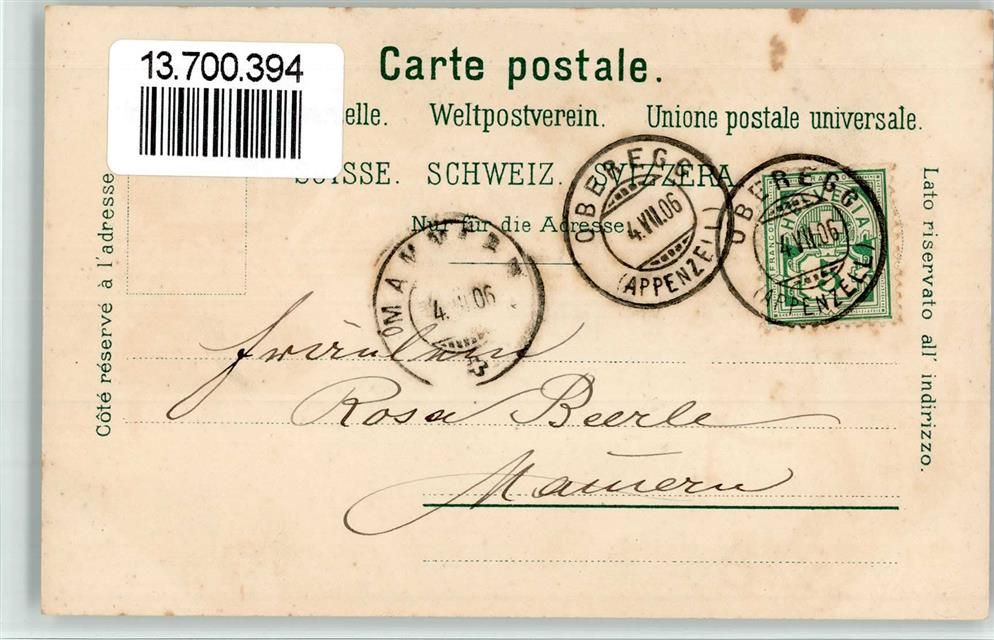 13.700.394
Carte postale.
elle. Weltpostverein. Unione postale universale.
SUISSE. SCHWEIZ. SVIZZERA
Nur für die Adresse.
Côté réservé à l'adresse.
Lato riservato all' indirizzo.
OBEREGG
4.VII.06
(APPENZELL)
OBEREGG
4.VII.06
(APPENZELL)
FRANCO
HELVETIA
5
MAMMERN
4.VII.06
Fräulein
Rosa Beerle
Mamern